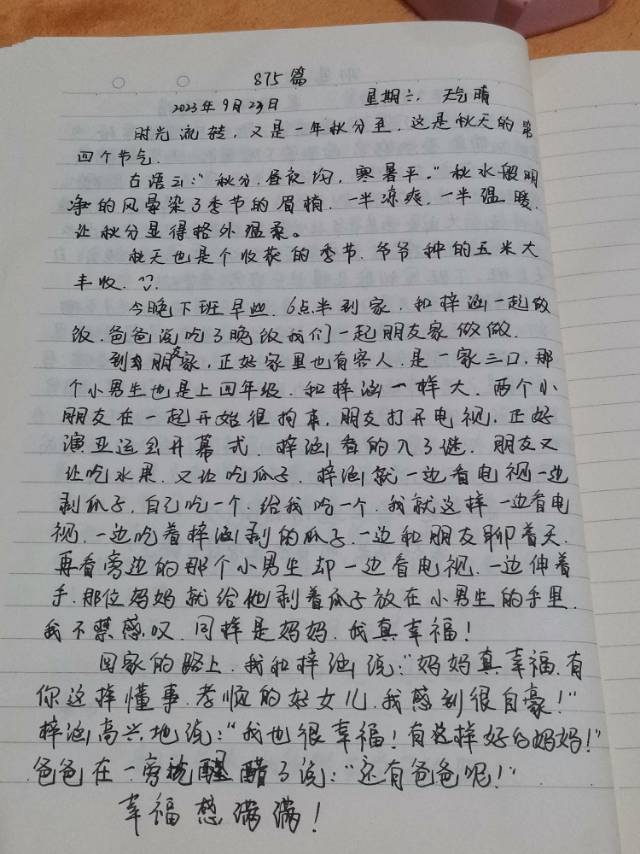 875篇
2023年9月23日 星期六 天气晴
时光流转,又是一年秋分至,这是秋天的第
四个节气.
古语云:“秋分,昼夜均,寒暑平。”秋水般明
净的风景染了季节的眉梢,一半凉爽,一半温暖,
让秋分显得格外温柔。
秋天也是个收获的季节.爷爷种的玉米大
丰收.
今晚下班早些.6点半到家.和梓涵一起做
饭.爸爸说吃了晚饭我们一起朋友家做做.
到朋友家,正好家里也有客人.是一家三口,那
个小男生也是上四年级.和梓涵一样大.两个小
朋友在一起开始很拘束,朋友打开电视,正好
演亚运会开幕式.梓涵看的入了迷.朋友又
让吃水果.又让吃瓜子.梓涵就一边看电视一边
剥瓜子,自己吃一个.给我吃一个.我就这样一边看电
视.一边吃着梓涵剥的瓜子.一边和朋友聊着天.
再看旁边的那个小男生却一边看电视.一边伸着
手.那位妈妈就给他剥着瓜子放在小男生的手里.
我不禁感叹.同样是妈妈.我真幸福!
回家的路上.我和梓涵说:“妈妈真幸福.有
你这样懂事.孝顺的好女儿.我感到很自豪!”
梓涵高兴地说:“我也很幸福!有这样好的妈妈!”
爸爸在一旁 醋了说:“还有爸爸呢!”
幸福感满满!